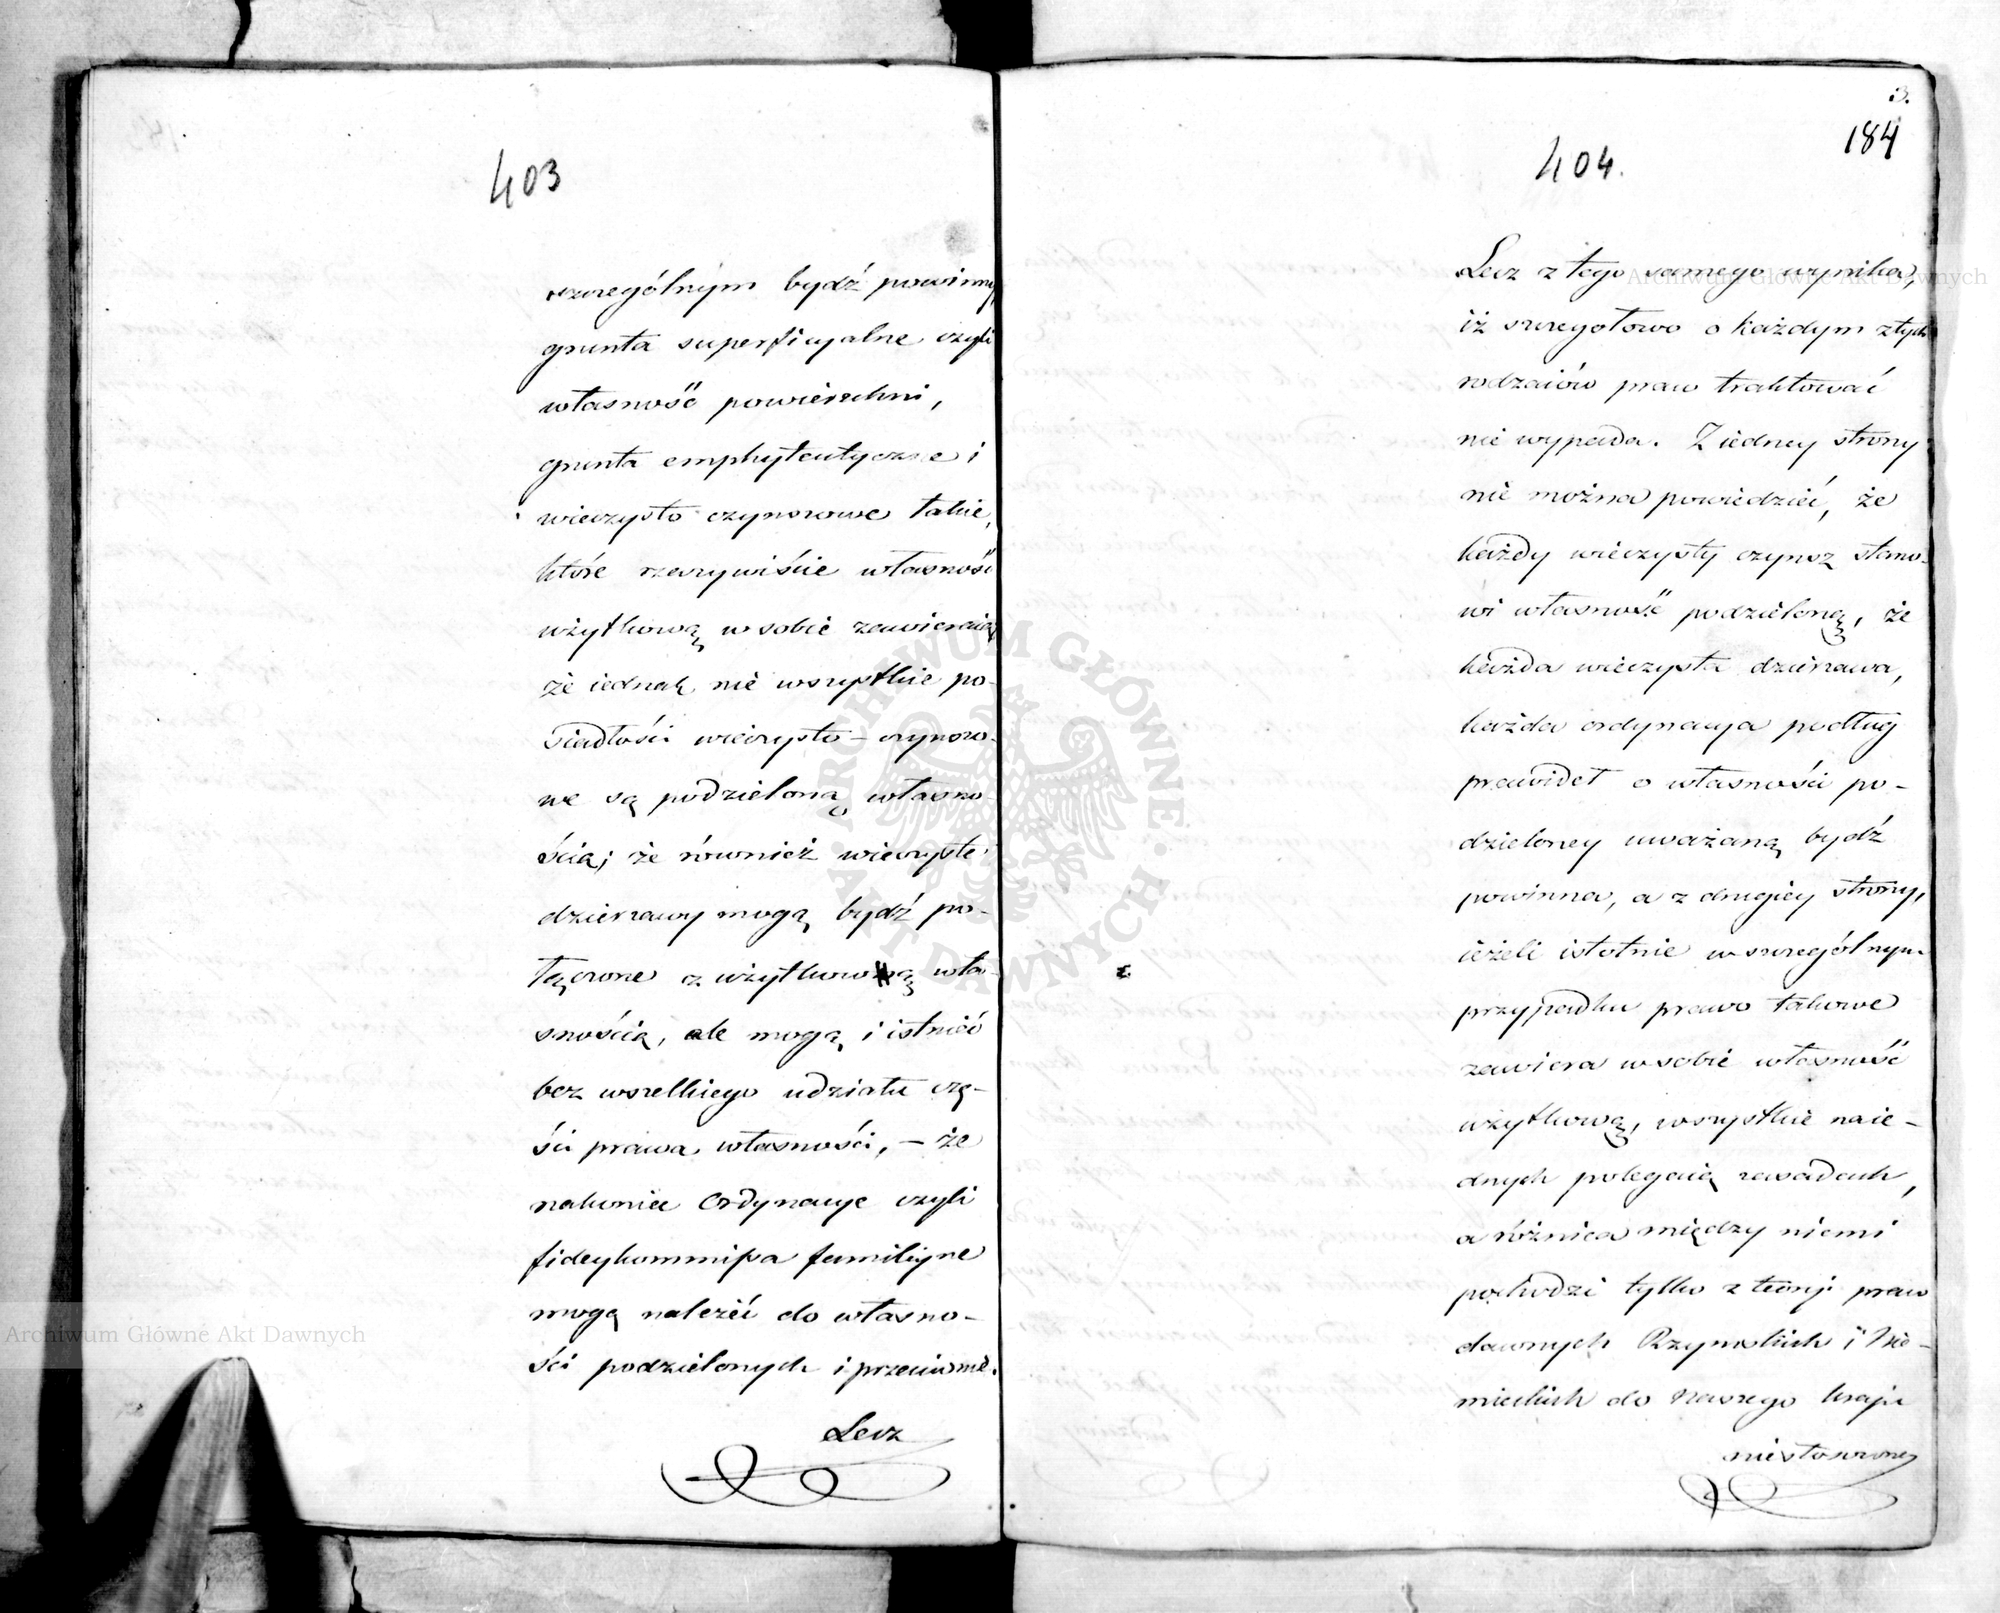 403
szczególnym bydź powinny
grunta superficyalne czyli
własność powierzchni,
grunta emphyteutyczne i
wieczysto czynszowe takie,
które rzeczywiście własność
użytkową w sobie zawieraią
że iednak nie wszystkie po-
siadłości wieczysto-czynszo-
we są podzieloną własno-
ścią; że również wieczyste
dzierzawy mogą bydź po-
łączone z użytkową wła-
snością, ale mogą i istnieć
bez wszelkiego udziału czę-
ści prawa własności, – że
nakoniec Ordynacye czyli
fideykommissa familiyne
mogą należeć do własno-
ści podzielonych i przeciwnie.
Lecz
3.
184
404.
Lecz z tego samego wynika,
iż szczegołowo o każdym z tych
rodzaiów praw traktować
nie wypada. Z iedney strony
nie można powiedzieć, że
każdy wieczysty czynsz stano-
wi własność podzieloną, że
każda wieczysta dzierzawa,
każda ordynacya podług
prawideł o własności po-
dzieloney uważaną bydź
powinna, a z drugiey strony,
ieżeli istotnie w szczególnym
przypadku prawo takowe
zawiera w sobie własność
użytkową, wszystkie na ie-
dnych polegaią zasadach,
a różnica między niemi
pochodzi tylko z teoryi praw
dawnych Rzymskich i Nie-
mieckich do naszego kraju
niestosowney
Archiwum Główne Akt Dawnych
Archiwum Główne Akt Dawnych
ARCHIWUM GŁÓWNE · AKT DAWNYCH ·